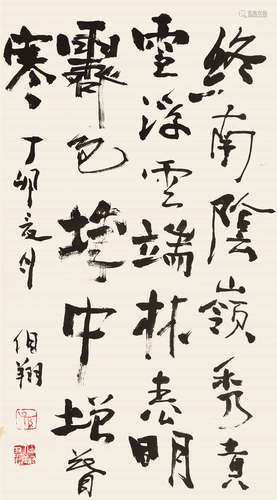 終南陰嶺秀積
雪浮雲端林表明
霽色城中增暮
寒
丁卯夏月
伯翔